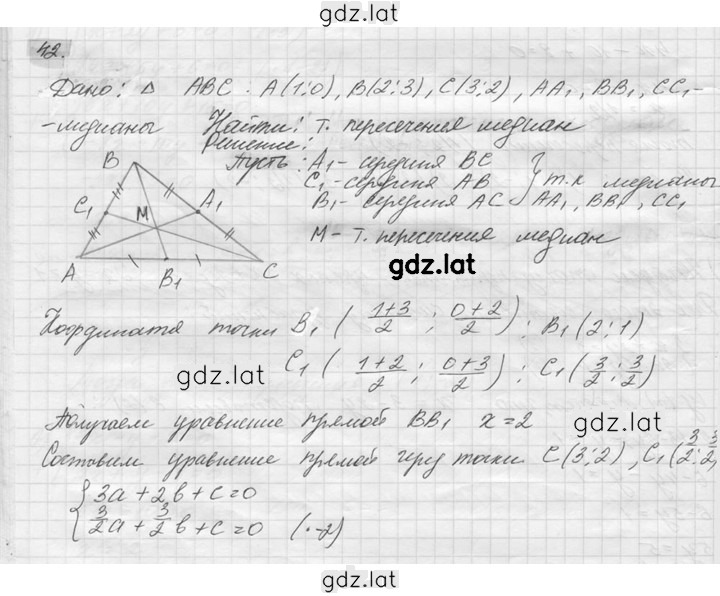 gdz.lat
42.
Дано: △ ABC. A(1;0), B(2;3), C(3;2), AA₁, BB₁, CC₁-
-медианы Найти: т. пересечения медиан
Решение:
Пусть: A₁- середина BC
C₁-середина AB } т.к медианы
B₁- середина AC AA₁, BB₁, CC₁
M- т. пересечения медиан
B
C₁
A₁
M
A
B₁
C
gdz.lat
Координаты точки B₁ ( (1+3)/2 ; (0+2)/2 ); B₁(2;1)
C₁ ( (1+2)/2 ; (0+3)/2 ); C₁(3/2 ; 3/2)
gdz.lat
gdz.lat
Получаем уравнение прямой BB₁ x=2
Составим уравнение прямой через точки C(3;2), C₁(3/2; 3/2)
{ 3a+2b+c=0
3/2a+3/2b+c=0 (·-2)
gdz.lat